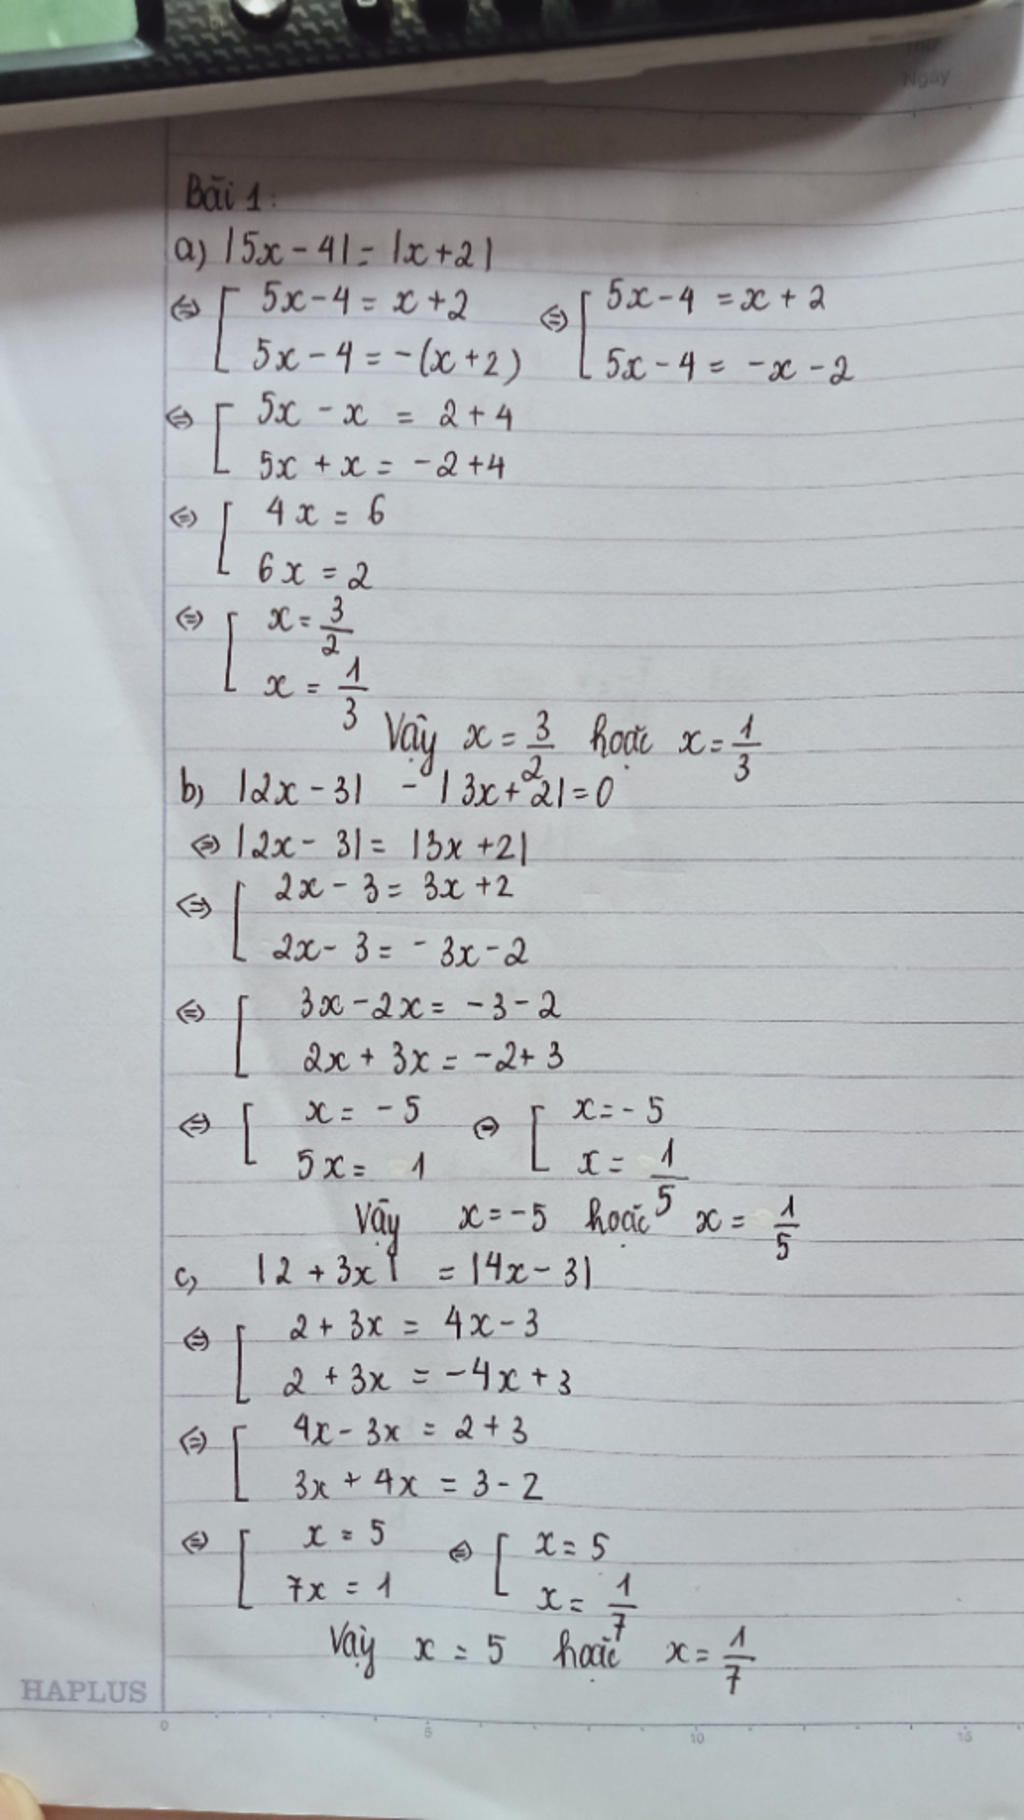 Ngày
Bài 1:
a) |5x - 4| = |x + 2|
⇔ [ 5x - 4 = x + 2 ⇔ [ 5x - 4 = x + 2
5x - 4 = -(x + 2) 5x - 4 = -x - 2
⇔ [ 5x - x = 2 + 4
5x + x = -2 + 4
⇔ [ 4x = 6
6x = 2
⇔ [ x = 3/2
x = 1/3
Vậy x = 3/2 hoặc x = 1/3
b) |2x - 3| - |3x + 2| = 0
⇔ |2x - 3| = |3x + 2|
⇔ [ 2x - 3 = 3x + 2
2x - 3 = -3x - 2
⇔ [ 3x - 2x = -3 - 2
2x + 3x = -2 + 3
⇔ [ x = -5 ⇔ [ x = -5
5x = 1 x = 1/5
Vậy x = -5 hoặc x = 1/5
c) |2 + 3x| = |4x - 3|
⇔ [ 2 + 3x = 4x - 3
2 + 3x = -4x + 3
⇔ [ 4x - 3x = 2 + 3
3x + 4x = 3 - 2
⇔ [ x = 5 ⇔ [ x = 5
7x = 1 x = 1/7
Vậy x = 5 hoặc x = 1/7
HAPLUS
0 5 10 15